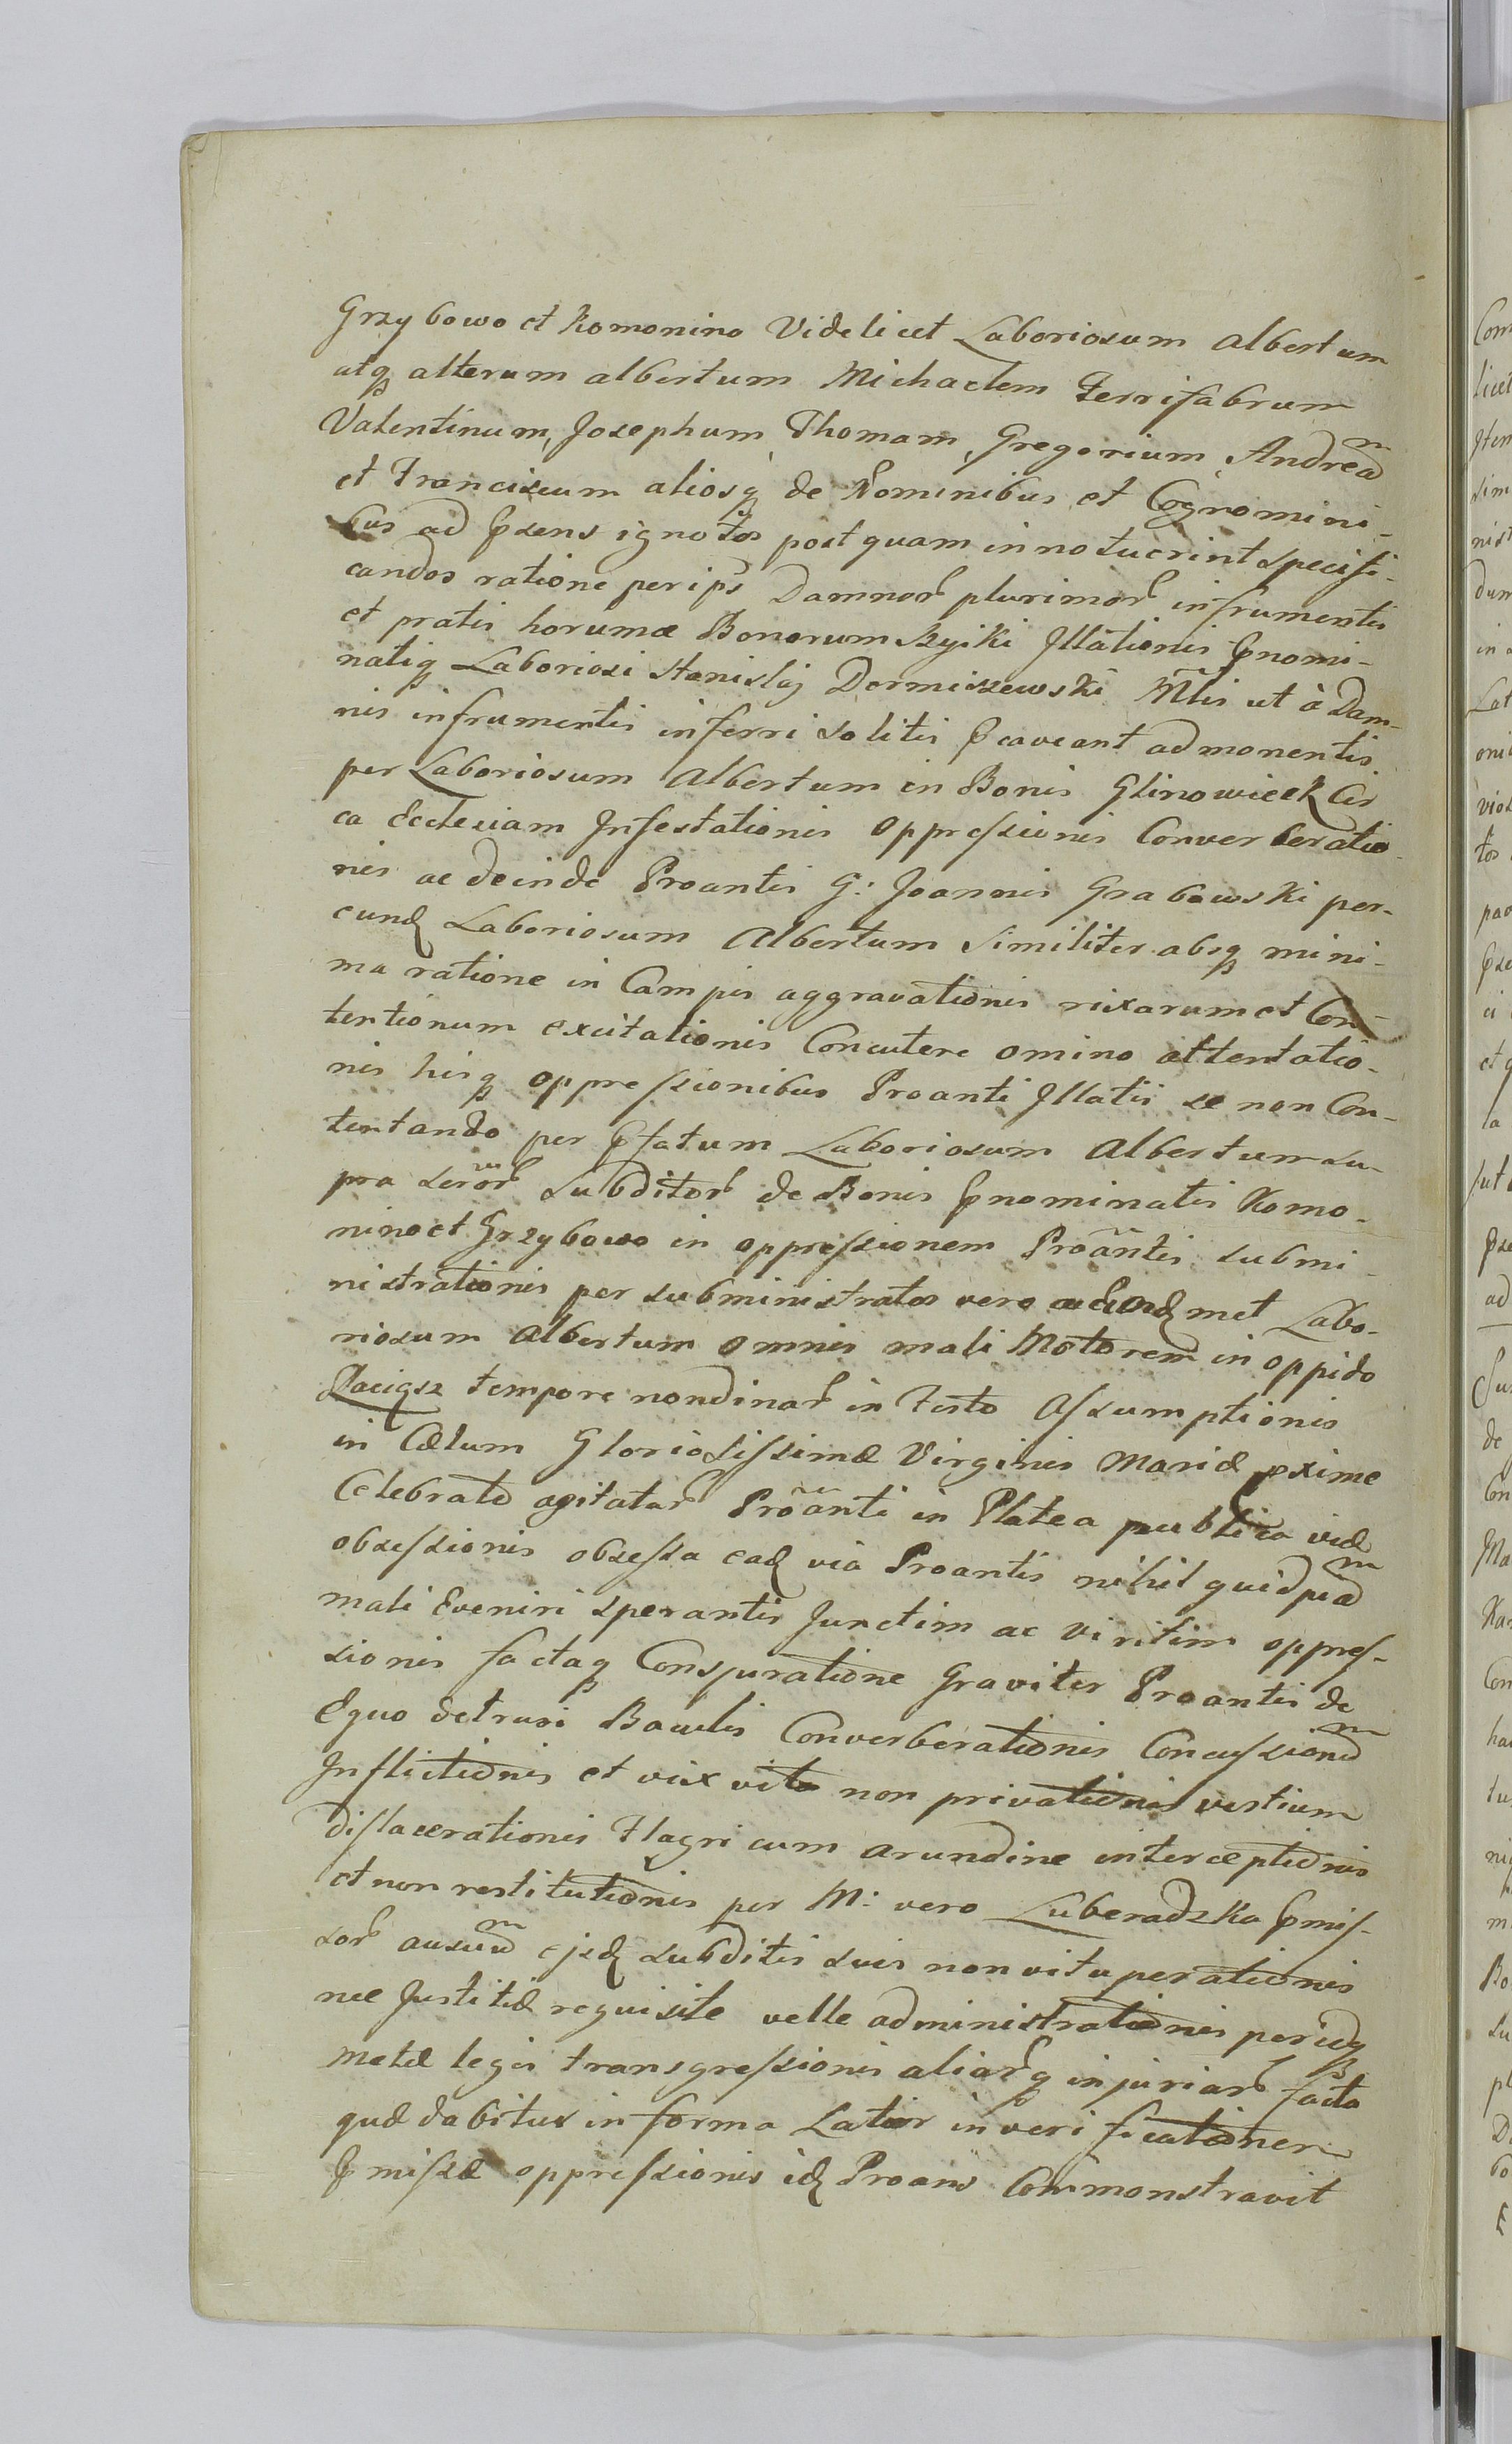 Grzybowo et Komonino Videlicet Laboriosum Albertum
atq3 alterum albertum Michaelem Ferrifabrum
Valentinum, Josephum, Thomam, Gregorium, Andream
et Franciscum aliosq3 de Nominibus et Cognomini-
bus ad Psens ignotos postquam innotuerint specifi-
candos ratione per ips Damnor plurimor in frumentis
et pratis horumce Bonorum Szyiki Illationis Pnomi-
natiq3 Laboriosi Stanislaj Dormiszewski Mltis ut à Dam-
nis in frumentis inferri solitis Pcaveant admonentis
per Laboriosum Albertum in Bonis Glinowieck Cir
ca Ecclesiam Infestationis Oppressionis Converberatio-
nis ac deinde Proantis G: Joannis Grabowski per-
eund Laboriosum Albertum Similiter absq3 mini-
ma ratione in Campis aggravationis rixarum et Con-
tentionum excitationis Concutere omino attentatio-
nis hisq3 oppressionibus Proanti Illatis se non Con-
tentando per Pfatum Laboriosum Albertum su-
pra scror Subditor de Bonis Pnominatis Komo-
nino et Grzybowo in oppressionem Proantis submi-
nistrationis per subministratos vero eund met Labo-
riosum Albertum omnis mali Motorem in oppido
Raciąsz tempore nondinar in Festo Assumptionis
in Cœlum Gloriosissimæ Virginis Mariæ pxime
Celebrato agitatar Proanti in Platea publica viæ
obsessionis obsessa ead via Proantis nihil quidpiam
mali Eveniri sperantis Junctim ac viritim oppres-
sionis factaq3 Conspiratione Graviter Proantis de
Equo detrusi Baculis Converberationis Concussionum
Inflictionis et vix vita non privationis vestium
dislacerationis Flagri cum arundine interceptionis
et non restitutionis per M: vero Luberadzka Pmis-
sor ausuum ejsd subditis suis non vituperationis
nec Justitiæ requisite velle administrationis
metæ legis transgressionis aliarq3 injuriar facta
quæ dabitur in forma Latior in verificationem
Pmissæ oppressionis id Proans Commonstravit